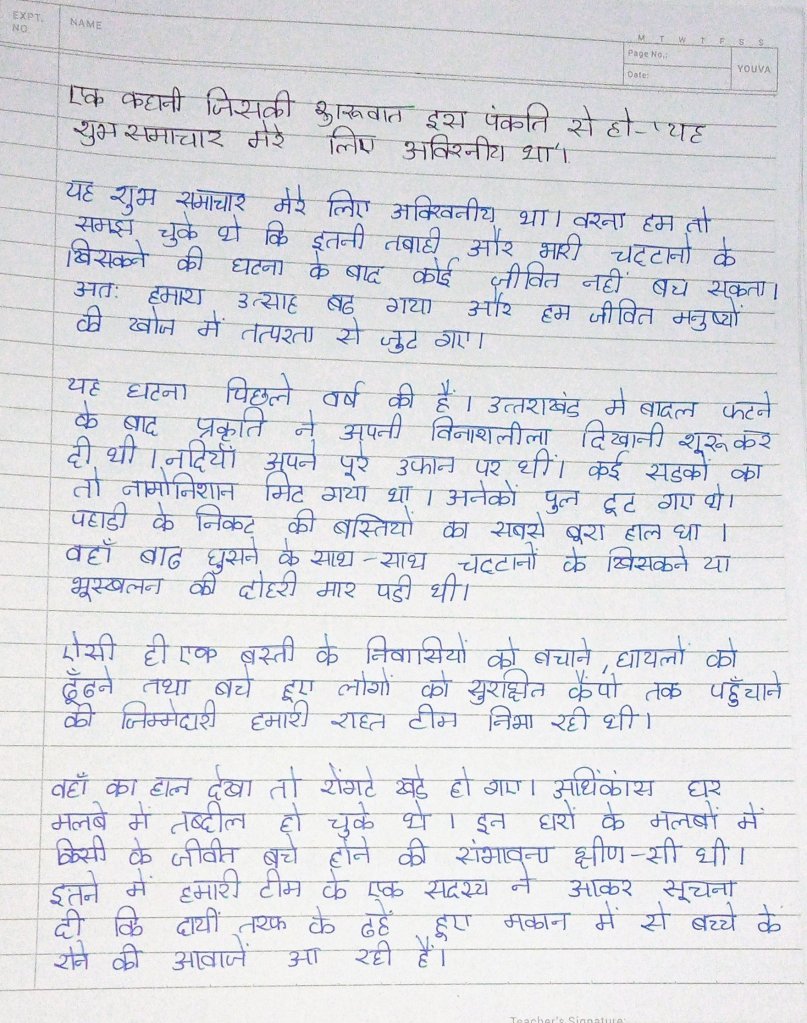 EXPT. NO.
NAME
M T W T F S S
Page No.:
Date:
YOUVA
एक कहानी जिसकी शुरूवात इस पंकति से हो- 'यह
शुभ समाचार मेरे लिए अविश्नीय था'।
यह शुभ समाचार मेरे लिए अविश्वनीय था। वरना हम तो
समझ चुके थे कि इतनी तबाही और भारी चट्टानों के
खिसकने की घटना के बाद कोई जीवित नहीं बच सकता।
अतः हमारा उत्साह बढ गया और हम जीवित मनुष्यों
की खोज में तत्परता से जुट गए।
यह घटना पिछले वर्ष की है। उत्तराखंड मे बादल फटने
के बाद प्रकृति ने अपनी विनाशलीला दिखानी शूरू कर
दी थी। नदियाँ अपने पूरे उफान पर थीं। कई सडकों का
तो नामोनिशान मिट गया था। अनेकों पुल टूट गए थे।
पहाडी के निकट की बस्तियों का सबसे बूरा हाल था।
वहाँ बाढ घुसने के साथ-साथ चट्टानों के खिसकने या
भूस्खलन की दोहरी मार पडी थी।
ऐसी ही एक बस्ती के निवासियों को बचाने, घायलों को
ढूँढने तथा बचे हुए लोगों को सुरक्षित कैंपो तक पहुँचाने
की जिम्मेदारी हमारी राहत टीम निभा रही थी।
वहाँ का हाल देखा तो रोंगटे खडे हो गए। अधिकांस घर
मलबे में तब्दील हो चुके थे। इन घरों के मलबों में
किसी के जीवीत बचे होने की संभावना क्षीण-सी थी।
इतने में हमारी टीम के एक सदस्य ने आकर सूचना
दी कि दायीं तरफ के ढहे हुए मकान में से बच्चे के
रोने की आवाजें आ रही हैं।
Teacher's Signature: